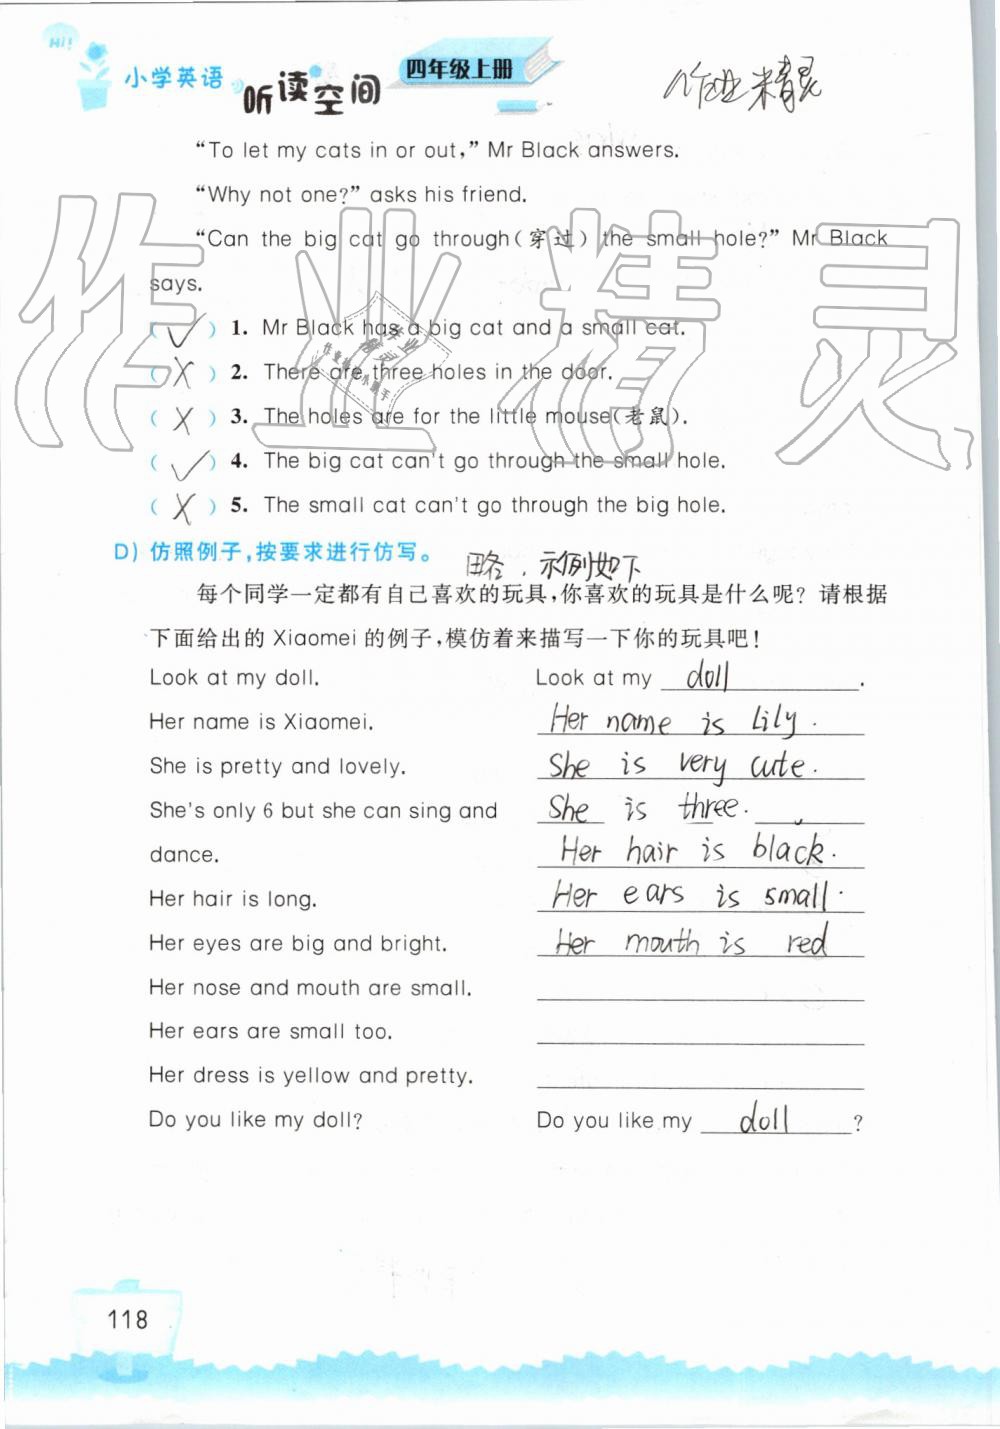 Hi!
小学英语 听读空间 四年级上册 作业精灵
“To let my cats in or out,” Mr Black answers.
“Why not one?” asks his friend.
“Can the big cat go through(穿过) the small hole?” Mr Black
says.
( ✓ ) 1. Mr Black has a big cat and a small cat.
( X ) 2. There are three holes in the door.
( X ) 3. The holes are for the little mouse(老鼠).
( ✓ ) 4. The big cat can't go through the small hole.
( X ) 5. The small cat can't go through the big hole.
作业精灵
D) 仿照例子,按要求进行仿写。 略.示例如下
每个同学一定都有自己喜欢的玩具,你喜欢的玩具是什么呢? 请根据
下面给出的 Xiaomei 的例子,模仿着来描写一下你的玩具吧!
Look at my doll. Look at my doll.
Her name is Xiaomei. Her name is Lily.
She is pretty and lovely. She is very cute.
She's only 6 but she can sing and She is three.
dance. Her hair is black.
Her hair is long. Her ears is small.
Her eyes are big and bright. Her mouth is red
Her nose and mouth are small.
Her ears are small too.
Her dress is yellow and pretty.
Do you like my doll? Do you like my doll?
118